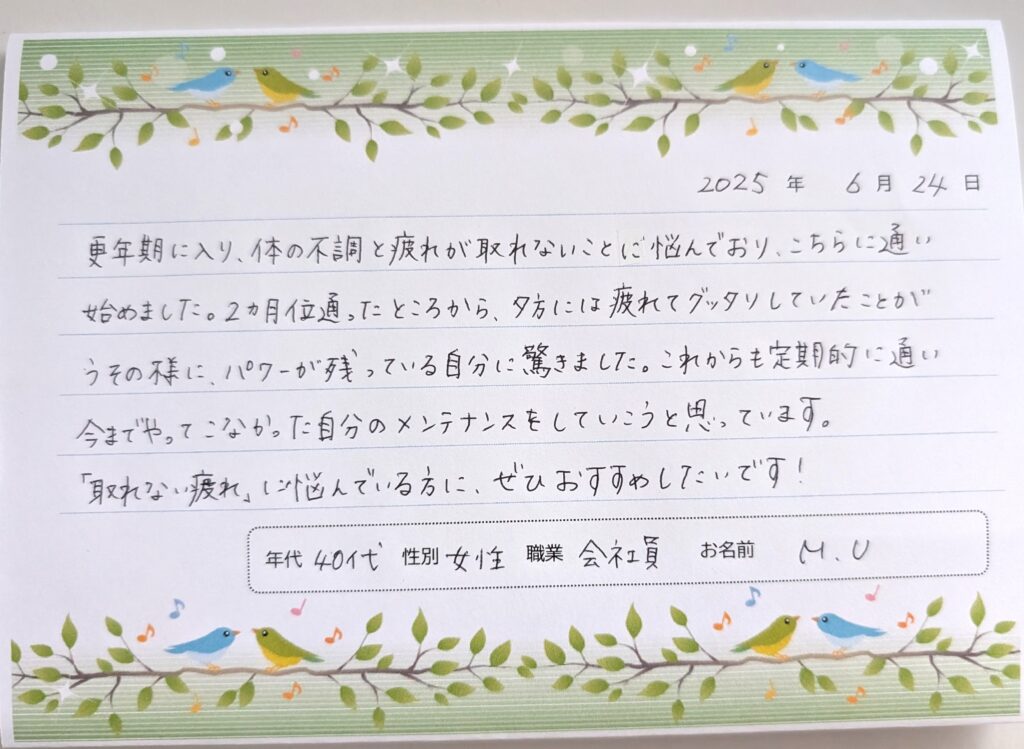 2025 年 6 月 24 日
更年期に入り、体の不調と疲れが取れないことに悩んでおり、こちらに通い
始めました。2カ月位通ったところから、夕方には疲れてグッタリしていたことが
うその様に、パワーが残っている自分に驚きました。これからも定期的に通い
今までやってこなかった自分のメンテナンスをしていこうと思っています。
「取れない疲れ」に悩んでいる方に、ぜひおすすめしたいです！
年代 40代 性別 女性 職業 会社員 お名前 M.U